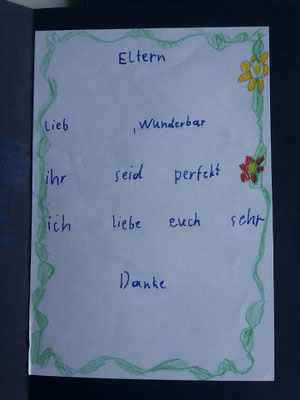 Eltern
Lieb , Wunderbar
ihr seid perfekt
ich liebe euch sehr
Danke